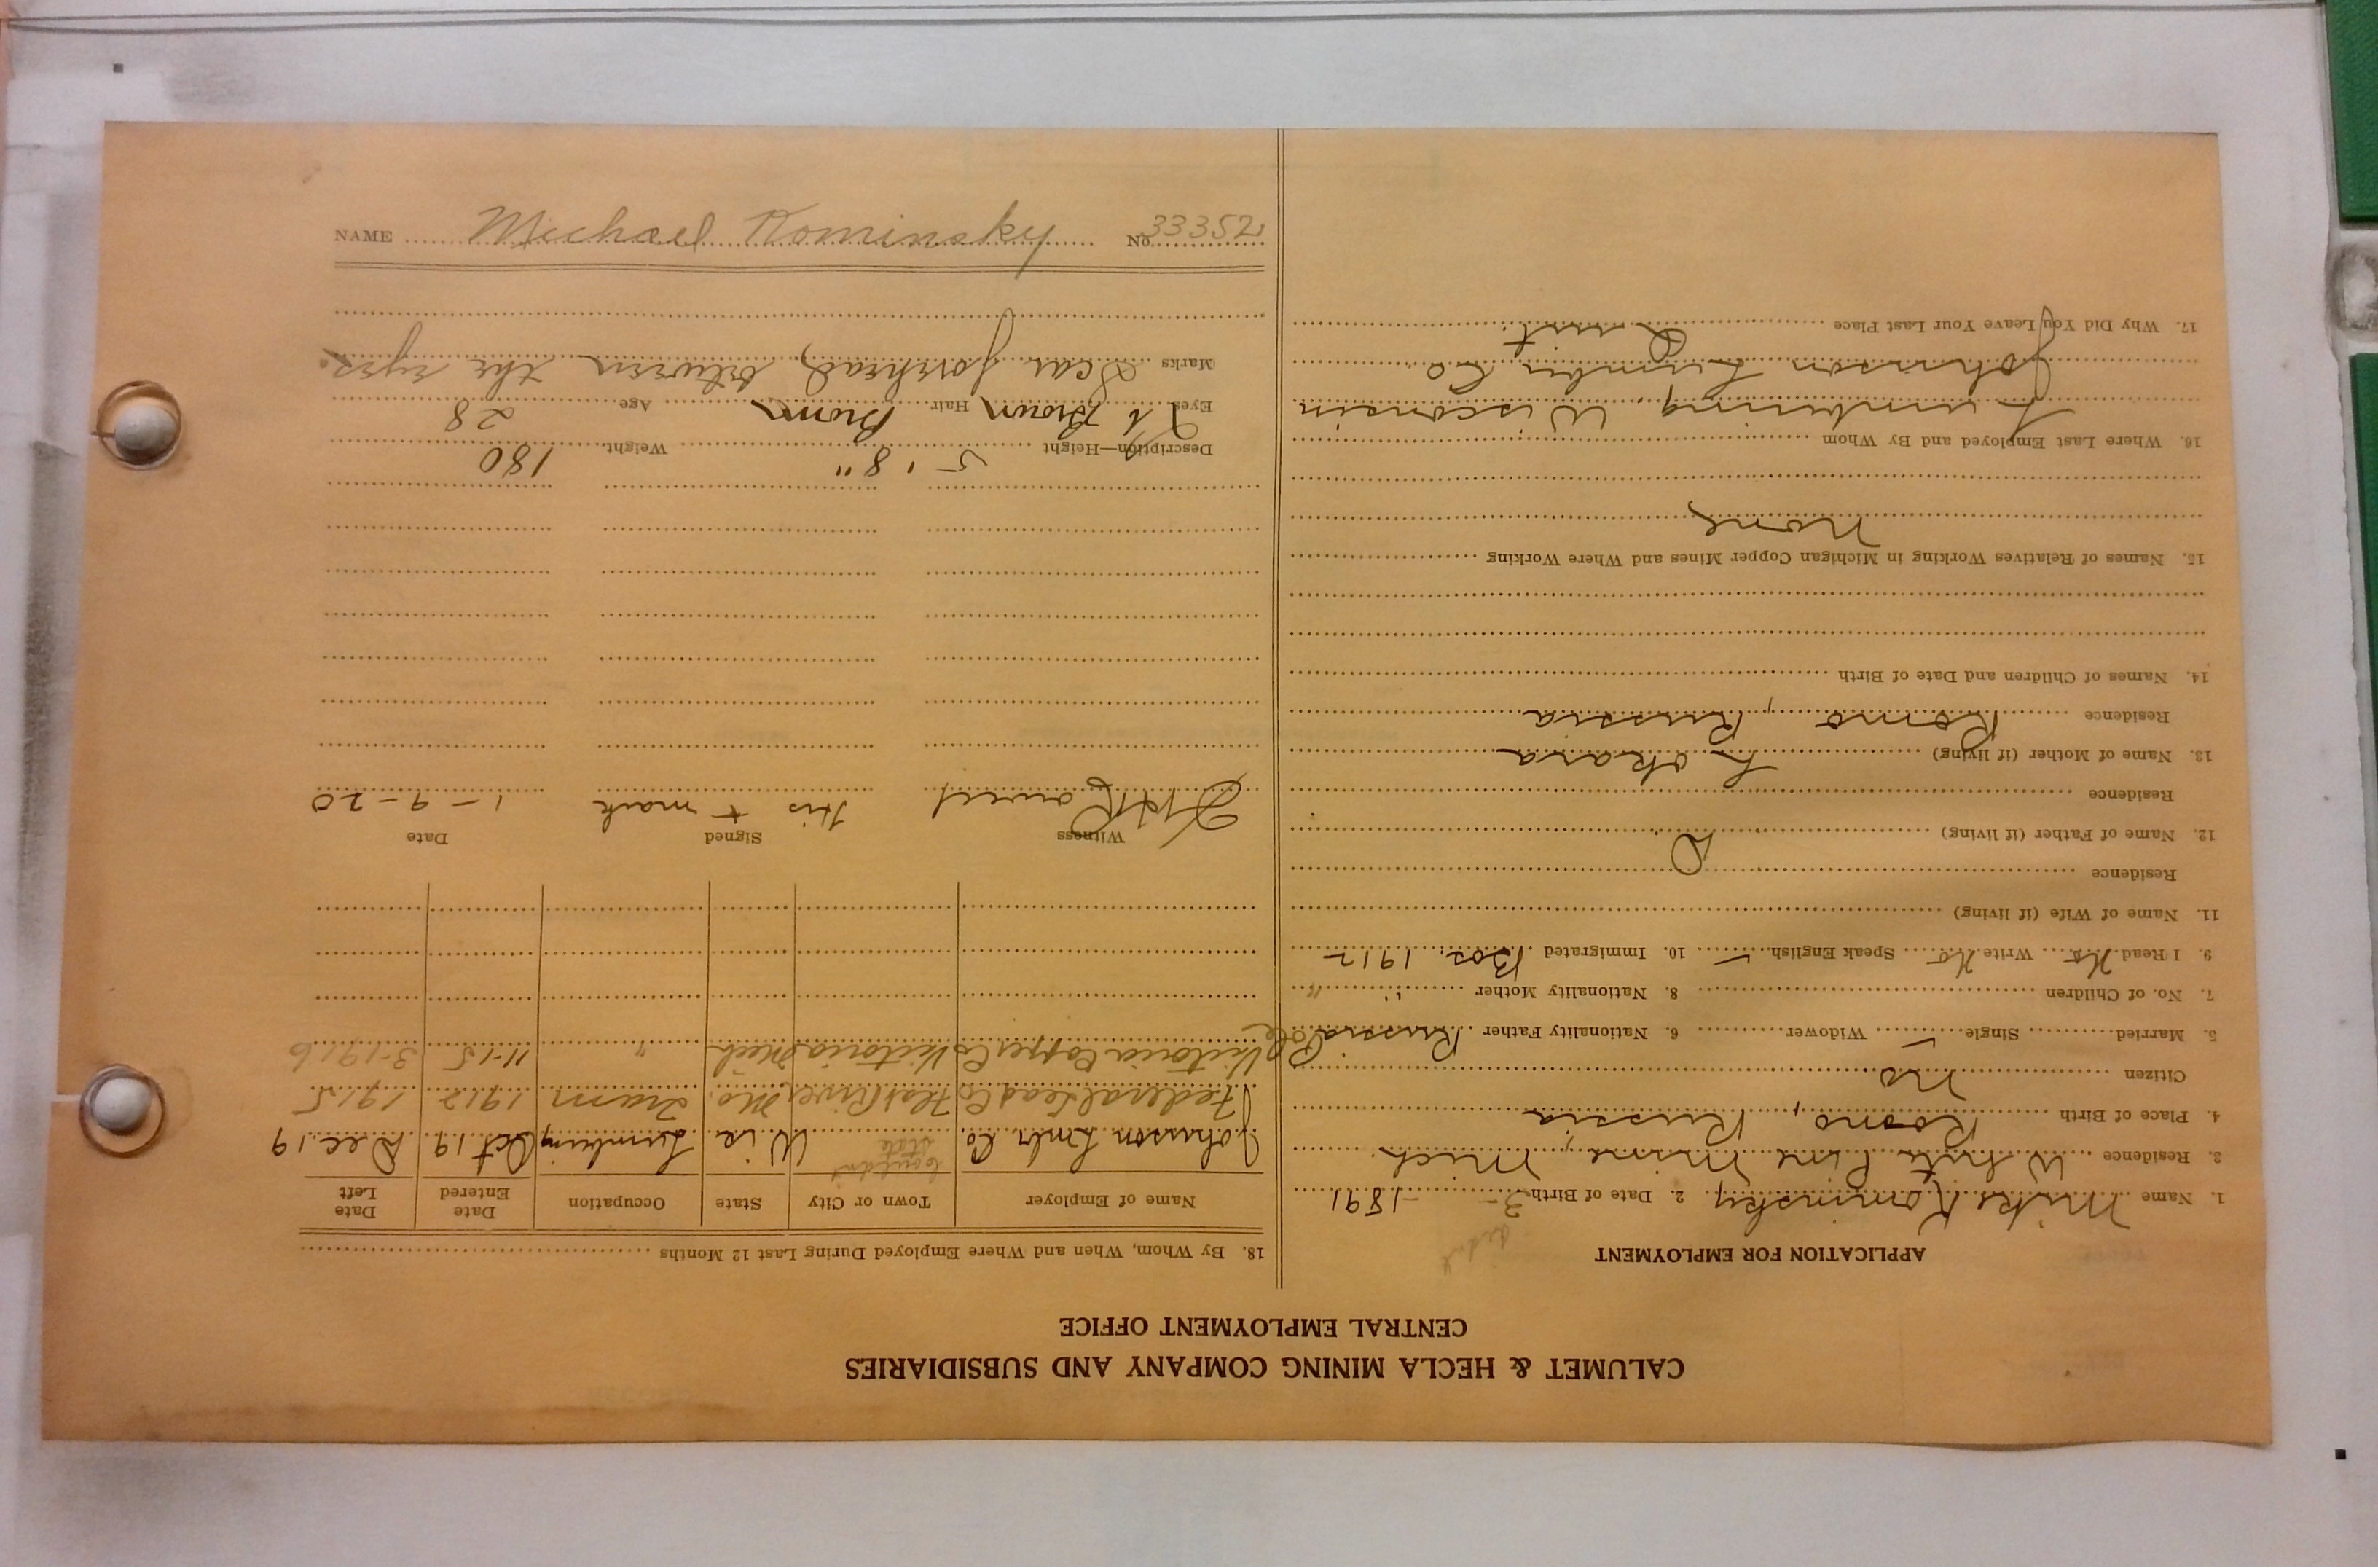 CALUMET & HECLA MINING COMPANY AND SUBSIDIARIES
CENTRAL EMPLOYMENT OFFICE
APPLICATION FOR EMPLOYMENT
1. Name Mike Kominsky 2. Date of Birth 3- -1891
3. Residence White Pine Mine, Mich
4. Place of Birth Rosno, Russia
Citizen No
5. Married Single ✓ Widower 6. Nationality Father Russia Pole
7. No. of Children 8. Nationality Mother " "
9. I Read No Write No Speak English ✓ 10. Immigrated Bos. 1912
11. Name of Wife (if living)
Residence
12. Name of Father (if living) D
Residence
13. Name of Mother (if living)
Residence Rosno, Russia
14. Names of Children and Date of Birth
15. Names of Relatives Working in Michigan Copper Mines and Where Working
None
16. Where Last Employed and By Whom
Lumbering, Wisconsin
Johnson Lumber Co.
17. Why Did You Leave Your Last Place Quit
18. By Whom, When and Where Employed During Last 12 Months
Name of Employer Town or City State Occupation Date Entered Date Left
Johnson Lmbr. Co. Couldn't state Wis Lumbering Oct 19 Dec. 19
Federal Lead Co Flat River Mo. Tram 1912 1915
Victoria Copper Co Victoria Mich " 11-15 3-1916
Witness Signed Date
His + mark 1-9-20
Description—Height 5' 8" Weight 180
Eyes Lt Brown Hair Brown Age 28
Marks Scar forehead, between the eyes.
NAME Michael Kominsky No. 33352